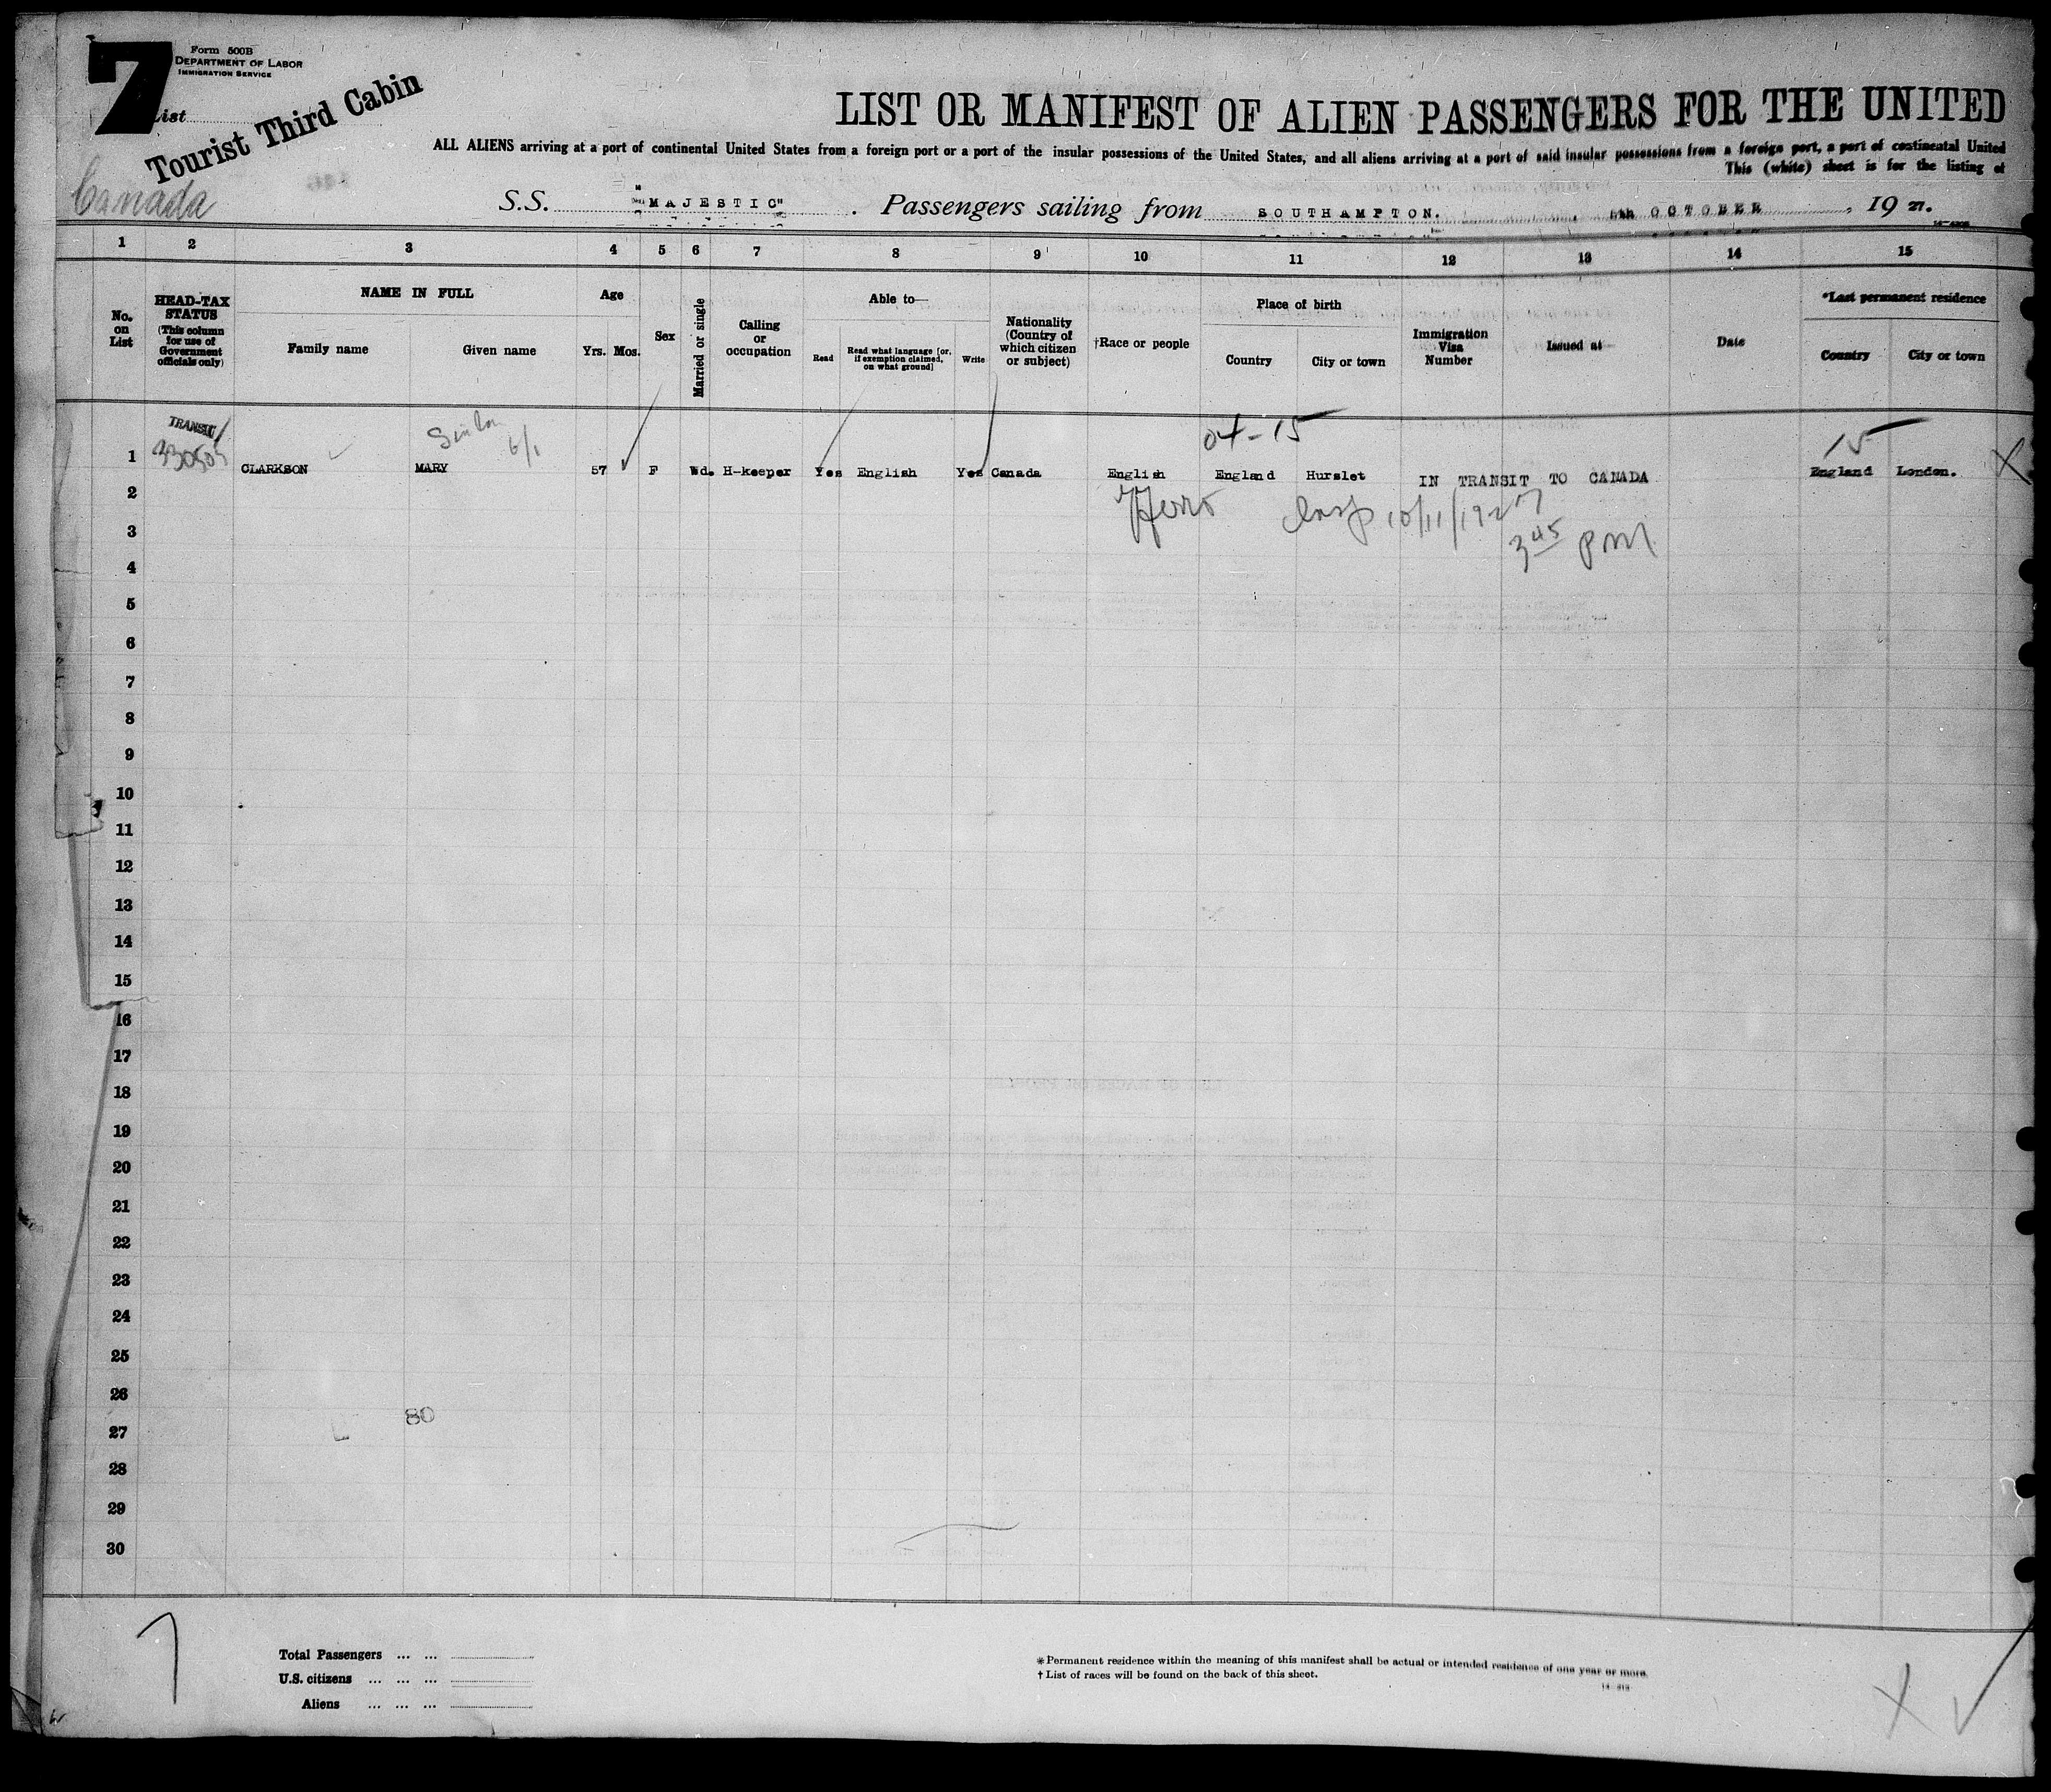 7
Form 500B
DEPARTMENT OF LABOR
IMMIGRATION SERVICE
List
Tourist Third Cabin
Canada
LIST OR MANIFEST OF ALIEN PASSENGERS FOR THE UNITED
ALL ALIENS arriving at a port of continental United States from a foreign port or a port of the insular possessions of the United States, and all aliens arriving at a port of said insular possessions from a foreign port, a port of continental United
This (white) sheet is for the listing of
S.S. "MAJESTIC" . Passengers sailing from SOUTHAMPTON. , OCTOBER , 19 27.
1 2 3 4 5 6 7 8 9 10 11 12 13 14 15
No. on List
HEAD-TAX STATUS
(This column for use of Government officials only)
NAME IN FULL
Family name
Given name
Age
Yrs. Mos.
Sex
Married or single
Calling or occupation
Able to—
Read
Read what language [or, if exemption claimed, on what ground]
Write
Nationality (Country of which citizen or subject)
†Race or people
Place of birth
Country
City or town
Immigration Visa Number
Issued at
Date
*Last permanent residence
Country
City or town
TRANSIT
04-15
15
1 CLARKSON MARY 57 F Wd. H-keeper Yes English Yes Canada English England Hurslet IN TRANSIT TO CANADA England London. X
10/11/1927
3 45 PM
2
3
4
5
6
7
8
9
10
11
12
13
14
15
16
17
18
19
20
21
22
23
24
25
26
80
27
28
29
30
Total Passengers ... ...
U.S. citizens ... ... ...
Aliens ... ... ...
*Permanent residence within the meaning of this manifest shall be actual or intended residence of one year or more.
†List of races will be found on the back of this sheet.
X